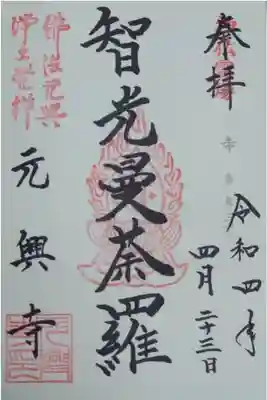 奉拝
令和四年
四月二十三日
智光曼荼羅
佛法元興
浄土発祥
元興寺